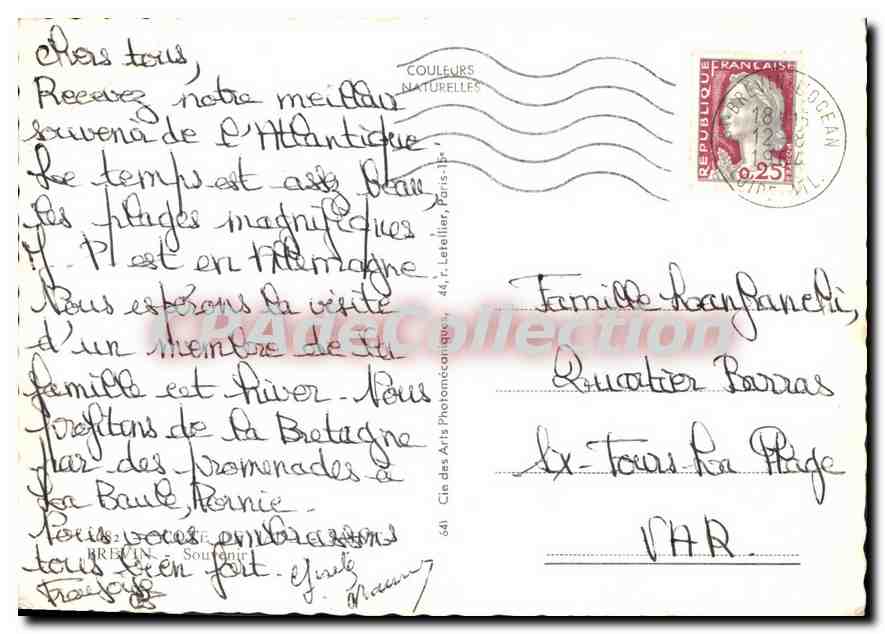 Chers tous,
Recevez notre meilleur
souvenir de l'Atlantique.
Le temps est assez beau,
les plages magnifiques.
J. P. est en Allemagne.
Nous espérons la visite
d'un membre de la
famille cet hiver. Nous
profitons de la Bretagne
par des promenades à
La Baule, Pornic.
Nous vous embrassons
tous bien fort.
Françoise
BREVIN - Souvenir
COULEURS
NATURELLES
641 Cie des Arts Photomécaniques, 44, r. Letellier, Paris-15e
REPUBLIQUE FRANÇAISE
0,25
OCEAN
18
12
19
Famille
Quartier Barras
Six-Fours La Plage
VAR.
CPAdeCollection